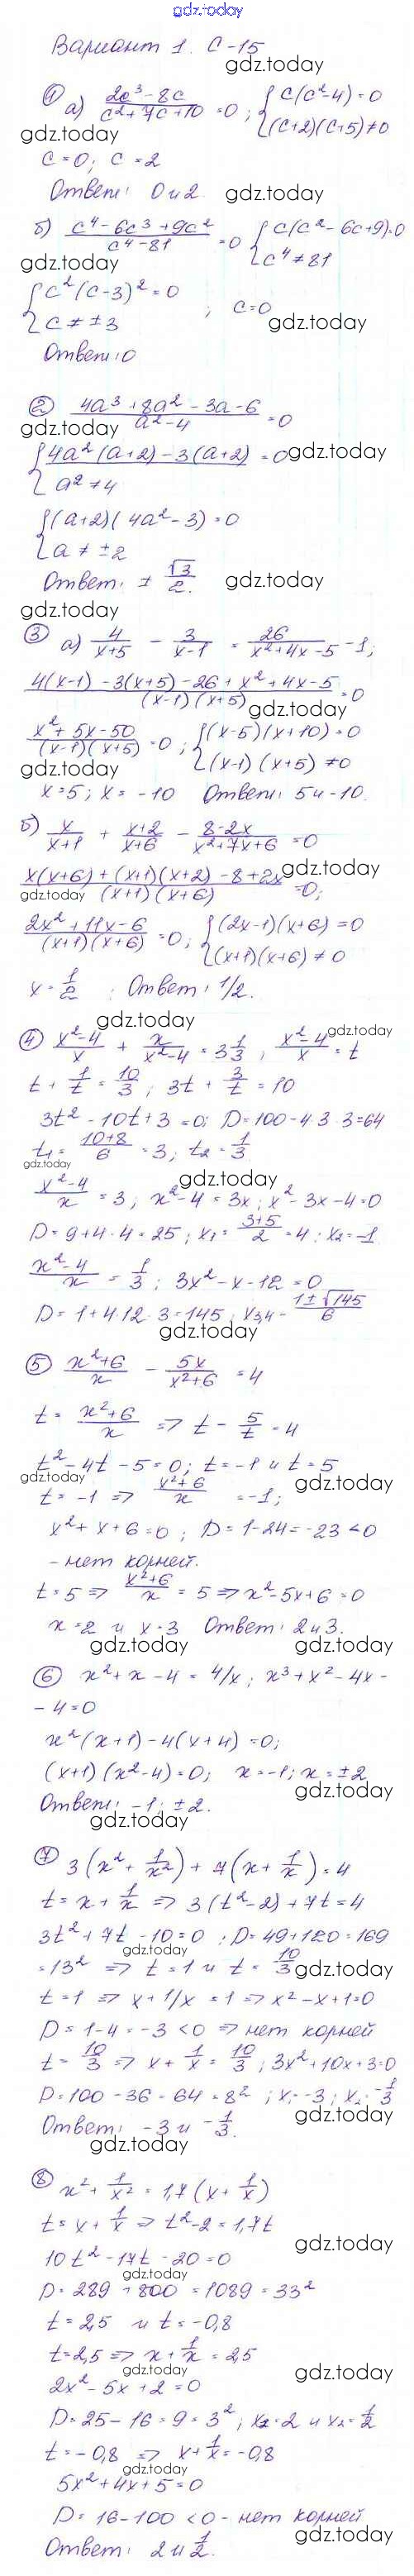 gdz.today
Вариант 1. С-15
gdz.today
① а) (2c³-8c)/(c²+7c+10) = 0; { c(c²-4)=0
(c+2)(c+5)≠0
gdz.today
c=0; c=2
Ответ: 0 и 2. gdz.today
б) (c⁴-6c³+9c²)/(c⁴-81) = 0 { c(c²-6c+9)=0
c⁴≠81
gdz.today
{ c²(c-3)²=0
c≠±3 ; c=0
gdz.today
Ответ: 0
② (4a³+8a²-3a-6)/(a²-4) = 0
gdz.today
{ 4a²(a+2)-3(a+2) = 0 gdz.today
a²≠4
{ (a+2)(4a²-3)=0
a≠±2
Ответ: ± √3/2. gdz.today
gdz.today
③ а) 4/(x+5) - 3/(x-1) = 26/(x²+4x-5) -1;
(4(x-1)-3(x+5)-26+x²+4x-5)/((x-1)(x+5)) = 0
gdz.today
(x²+5x-50)/((x-1)(x+5)) = 0; { (x-5)(x+10)=0
(x-1)(x+5)≠0
gdz.today
x=5; x=-10 Ответ: 5 и -10.
б) x/(x+1) + (x+2)/(x+6) - (8-2x)/(x²+7x+6) = 0
gdz.today
(x(x+6)+(x+1)(x+2)-8+2x)/((x+1)(x+6)) = 0;
gdz.today
(2x²+11x-6)/((x+1)(x+6)) = 0; { (2x-1)(x+6)=0
(x+1)(x+6)≠0
x=1/2 ; Ответ: 1/2.
gdz.today
④ (x²-4)/x + x/(x²-4) = 3 1/3; (x²-4)/x = t
gdz.today
t + 1/t = 10/3; 3t + 3/t = 10
3t²-10t+3=0; D=100-4·3·3=64
t₁= (10+8)/6 = 3; t₂= 1/3
gdz.today
gdz.today
(x²-4)/x = 3; x²-4=3x; x²-3x-4=0
D=9+4·4=25; x₁= (3+5)/2 = 4; x₂=-1
(x²-4)/x = 1/3; 3x²-x-12=0
D=1+4·12·3=145; x₃,₄= (1±√145)/6
gdz.today
⑤ (x²+6)/x - 5x/(x²+6) = 4
t = (x²+6)/x => t - 5/t = 4
t²-4t-5=0; t=-1 и t=5
gdz.today gdz.today
t=-1 => (x²+6)/x = -1;
x²+x+6=0; D=1-24=-23<0
- нет корней.
t=5 => (x²+6)/x = 5 => x²-5x+6=0
x=2 и x=3 Ответ: 2 и 3.
gdz.today gdz.today
⑥ x²+x-4 = 4/x; x³+x²-4x-
-4=0
x²(x+1)-4(x+4)=0;
(x+1)(x²-4)=0; x=-1; x=±2
gdz.today
Ответ: -1; ±2.
gdz.today
⑦ 3(x²+ 1/x²) + 7(x+ 1/x) = 4
t=x+ 1/x => 3(t²-2)+7t=4
3t²+7t-10=0; D=49+120=169
gdz.today
=13² => t=1 и t= 10/3 gdz.today
t=1 => x+1/x=1 => x²-x+1=0
D=1-4=-3<0 => нет корней
t= 10/3 => x+ 1/x = 10/3; 3x²+10x+3=0
D=100-36=64=8²; x₁=-3; x₂=-1/3
gdz.today
Ответ: -3 и -1/3.
gdz.today
⑧ x²+ 1/x² = 1,7(x+ 1/x)
t=x+ 1/x => t²-2=1,7t
gdz.today
10t²-17t-20=0
gdz.today
D=289+800=1089=33²
t=2,5 и t=-0,8
t=2,5 => x+ 1/x = 2,5
gdz.today gdz.today
2x²-5x+2=0
D=25-16=9=3²; x₂=2 и x₂= 1/2
t=-0,8 => x+ 1/x = -0,8
gdz.today
5x²+4x+5=0
D=16-100<0 - нет корней
gdz.today
Ответ: 2 и 1/2.